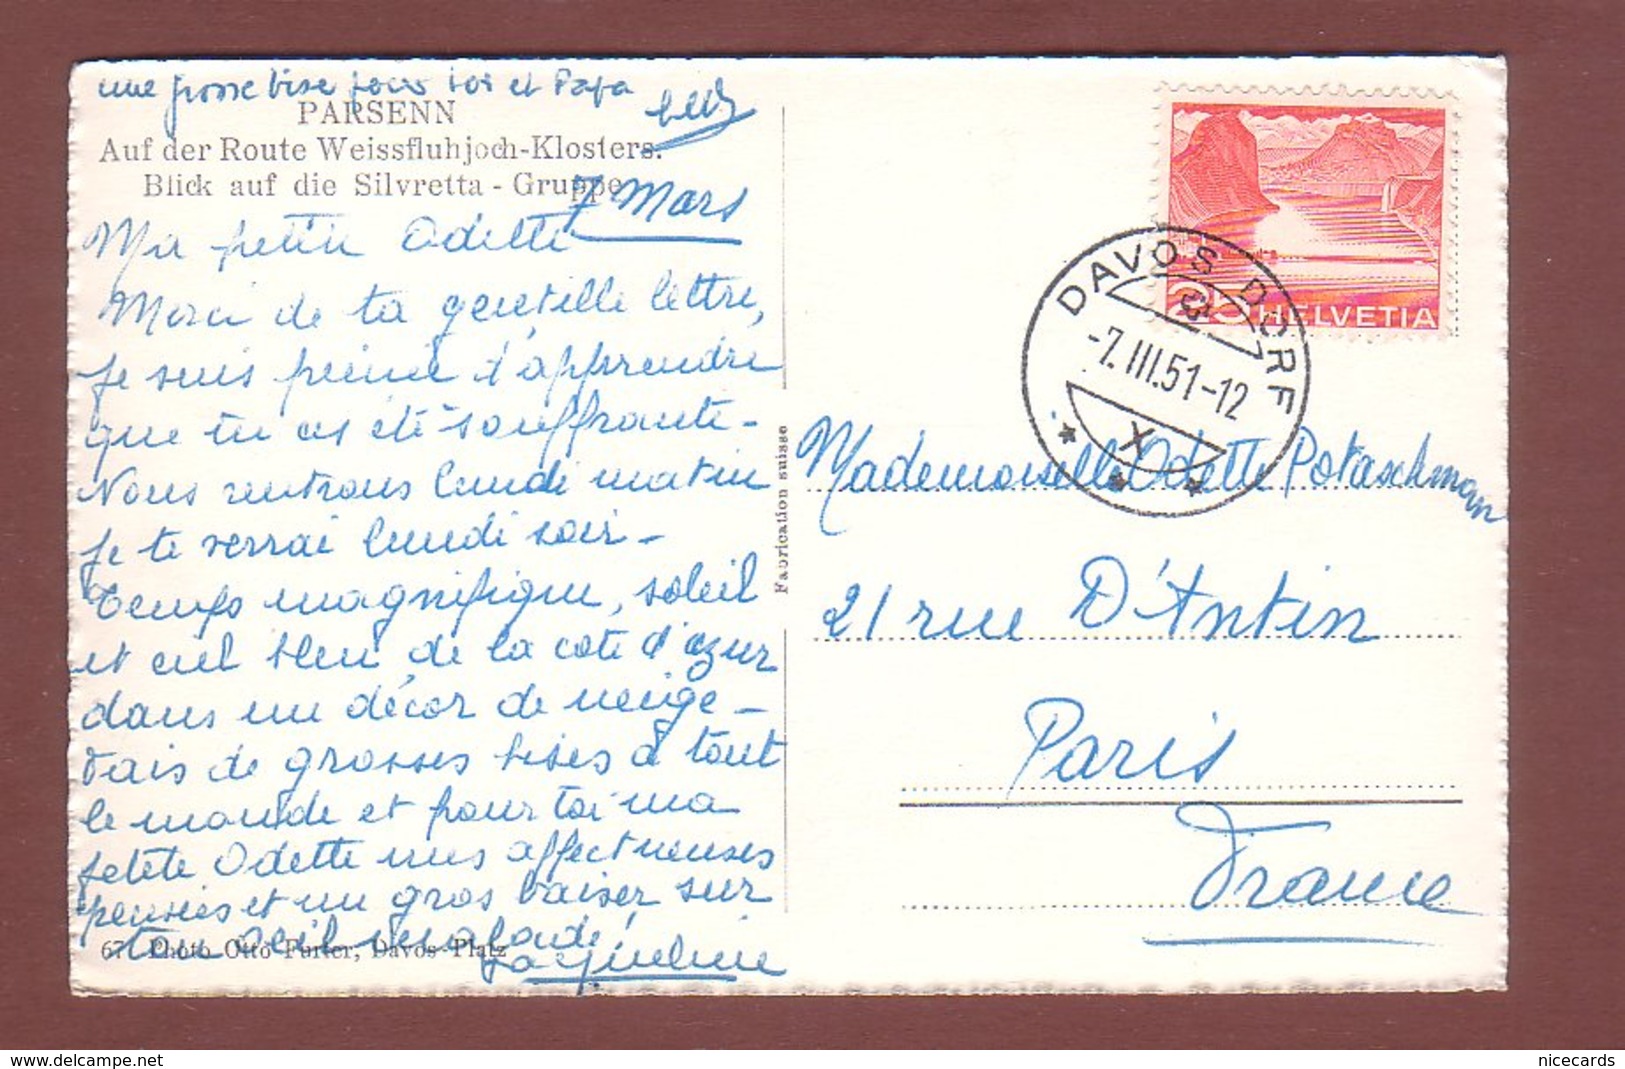 une grosse bise pour toi et Papa
PARSENN
Auf der Route Weissfluhjoch-Klosters.
Blick auf die Silvretta - Gruppe
7 Mars
Ma petite Odette
Merci de ta gentille lettre,
je suis peinée d'apprendre
que tu as été souffrante -
Nous rentrons lundi matin
je te verrai lundi soir -
Temps magnifique, soleil
et ciel bleu de la cote d'azur
dans un décor de neige -
Fais de grosses bises à tout
le monde et pour toi ma
petite Odette mes affectueuses
pensées et un gros baiser sur
ton œil
Jacqueline
67 Photo Otto Furter, Davos-Platz
Fabrication suisse
25 HELVETIA
DAVOS DORF
-7.III.51-12
X
Mademoiselle Odette Potaschman
21 rue D'Antin
Paris
France
delcampe.net
nicecards